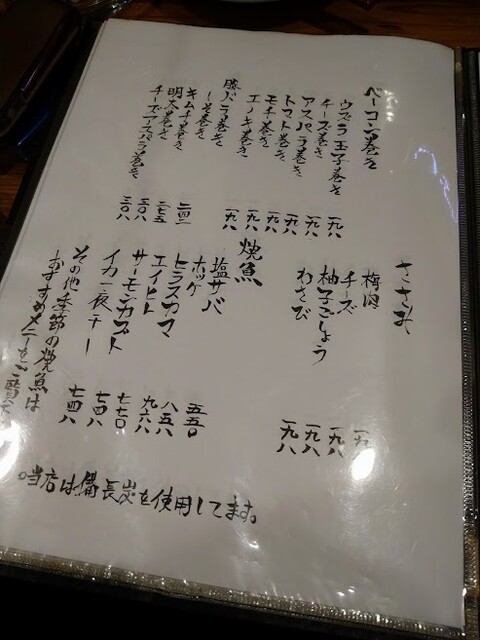 ベーコン巻き
ウズラ玉子巻き 一九八
チーズ巻き 一九八
アスパラ巻き 一九八
トマト巻き 一九八
モチ巻き 一九八
エノキ巻き 一九八
豚バラ巻き
しそ巻き 二四二
キムチ巻き 二七五
明太巻き 三〇八
チーズアスパラ巻き 三〇八
ささみ
梅肉
チーズ 一九八
柚子ごしょう 一九八
わさび 一九八
焼魚
塩サバ 五五〇
ホッケ 八五八
ヒラスカマ 九六八
エイヒレ 七七〇
サーモンカブト 七四八
イカ一夜干し 七四八
その他季節の焼魚は
おすすめメニーをご覧
○当店は備長炭を使用してます。